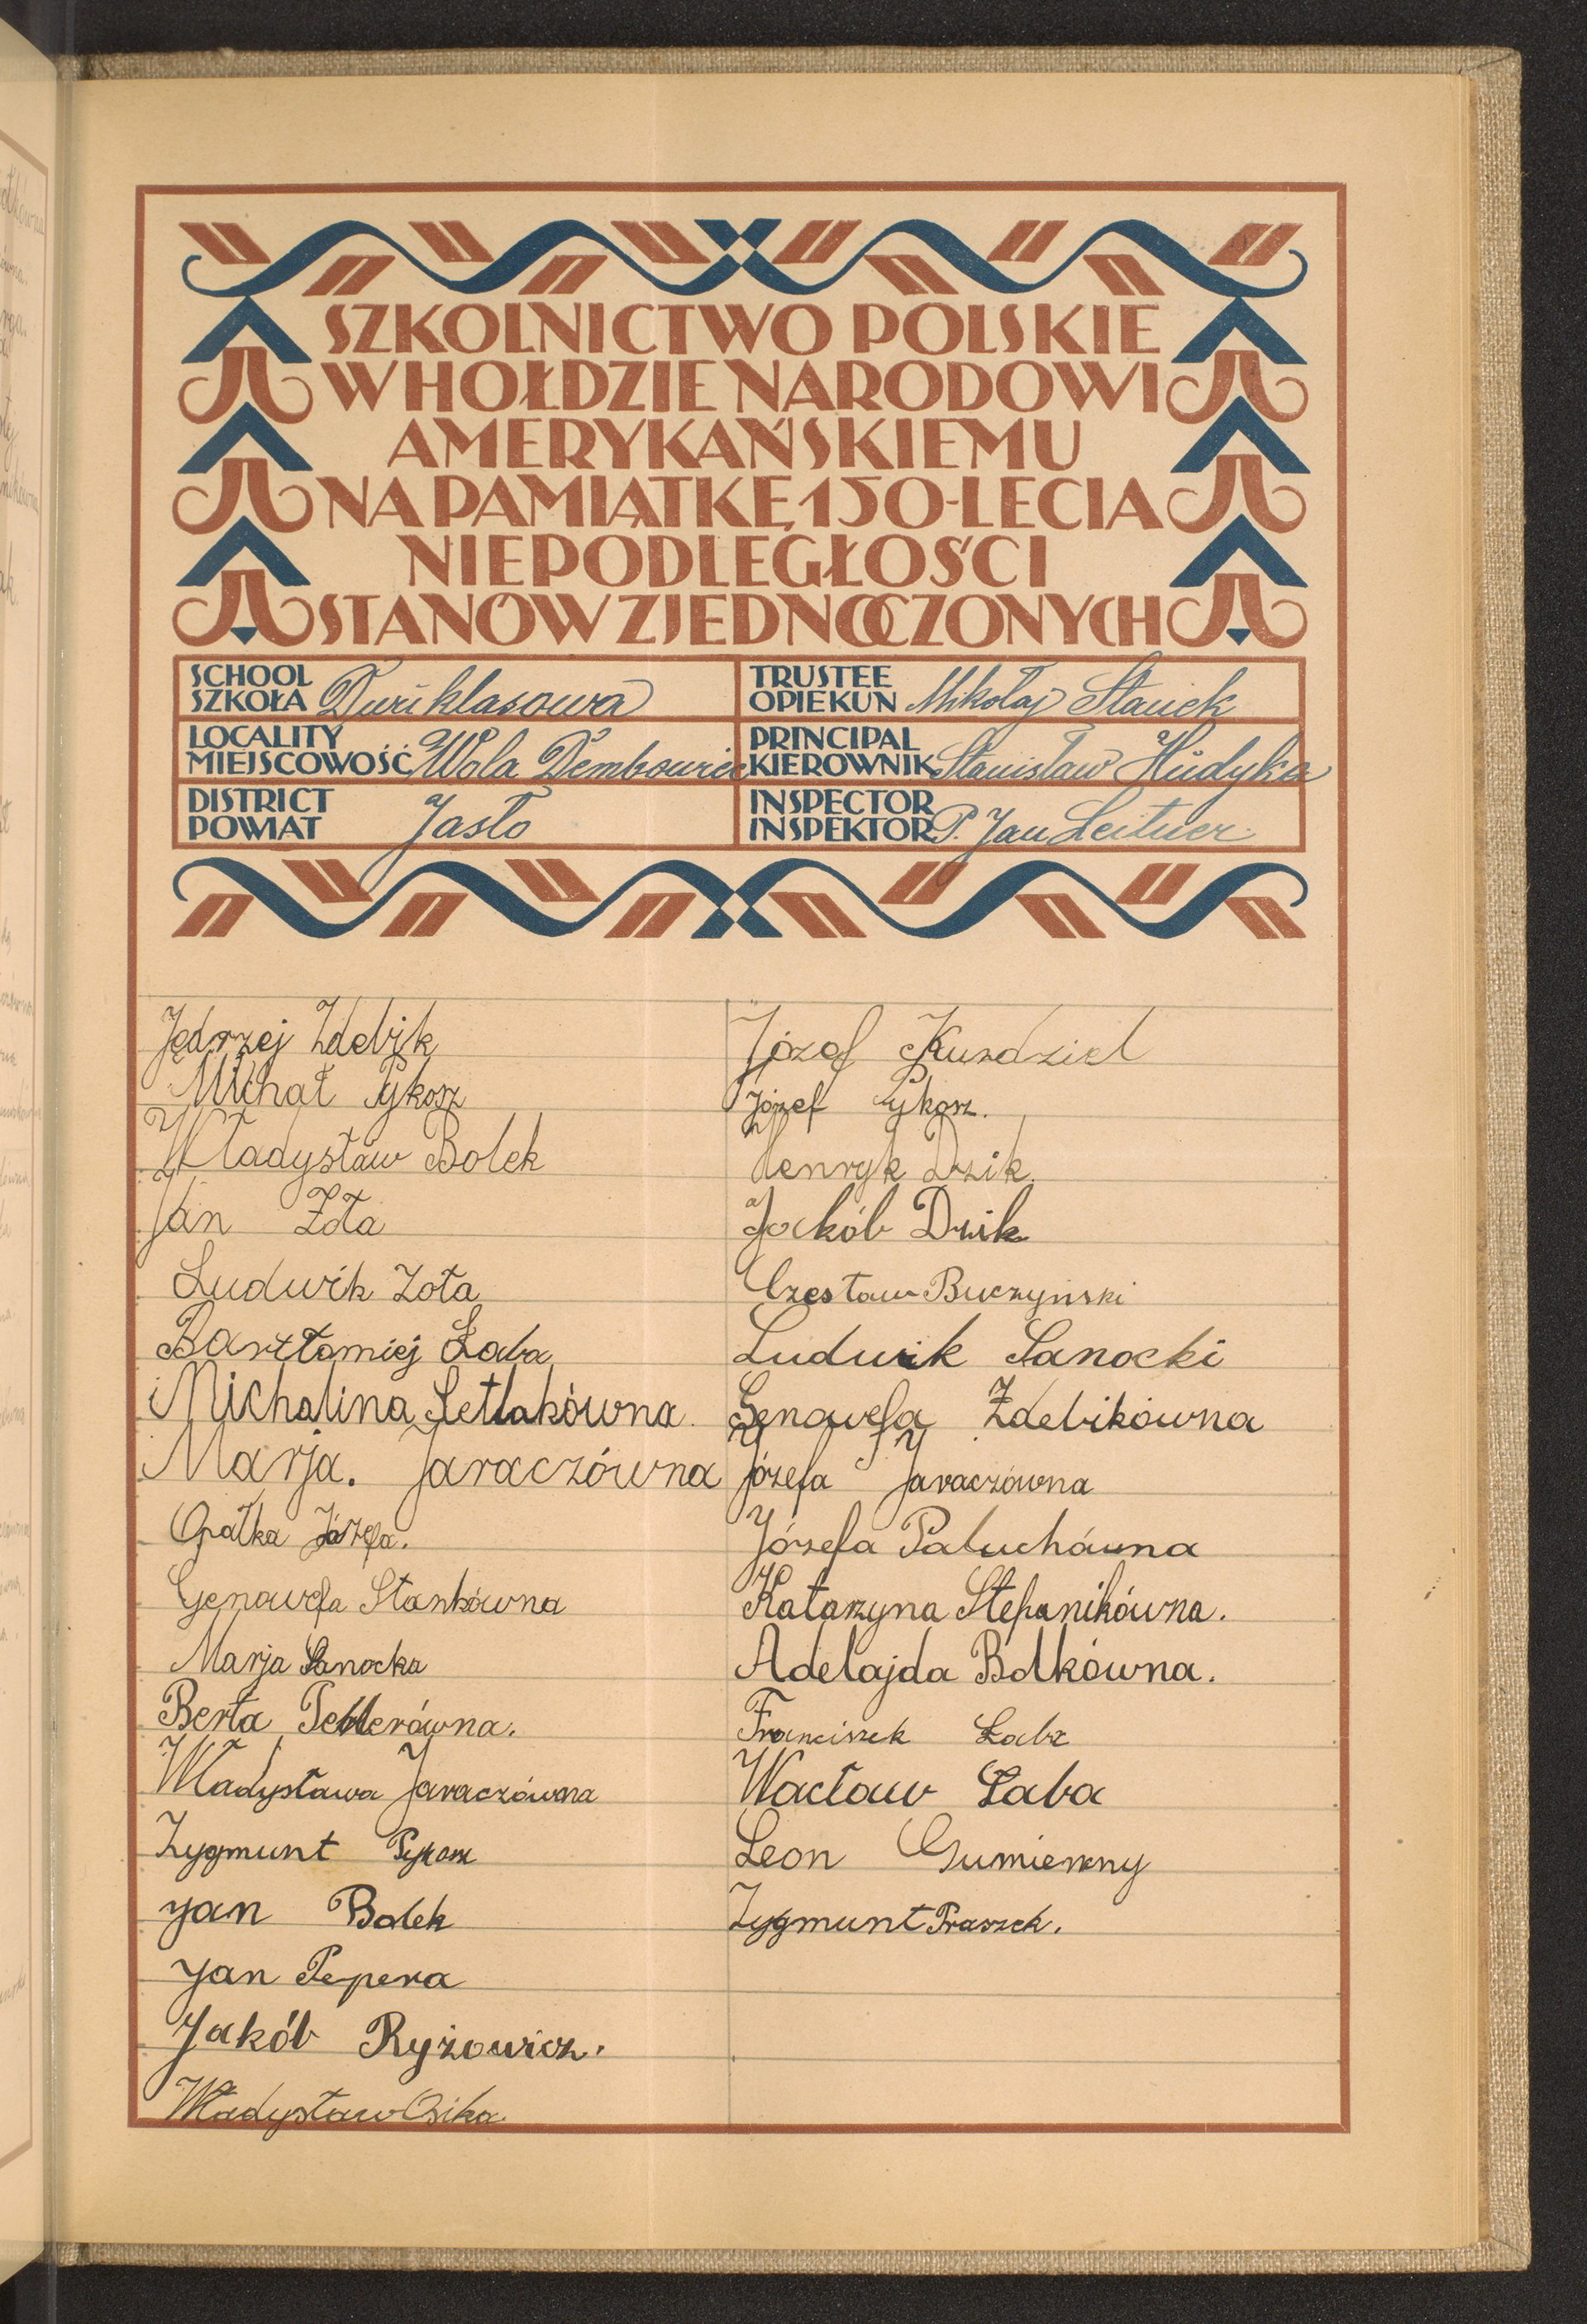 SZKOLNICTWO POLSKIE
W HOŁDZIE NARODOWI
AMERYKAŃSKIEMU
NA PAMIĄTKĘ 150-LECIA
NIEPODLEGŁOŚCI
STANÓW ZJEDNOCZONYCH
SCHOOL
SZKOŁA Dwuklasowa
TRUSTEE
OPIEKUN Mikołaj Stanek
LOCALITY
MIEJSCOWOŚĆ Wola Dembowiec
PRINCIPAL
KIEROWNIK Stanisław Hudyka
DISTRICT
POWIAT Jasło
INSPECTOR
INSPEKTOR P. Jan Leitner
Jędrzej Zdebik
Michał Pykosz
Władysław Bolek
Jan Zota
Ludwik Zota
Bartłomiej Łaba
Michalina Setlakówna.
Marja. Jaraczówna
Opałka Józefa.
Genowefa Stankówna
Marja Sanocka
Berta
Władysława Jaraczówna
Zygmunt Pykosz
Jan Bolek
Jan Pepera
Jakób Ryżowicz.
Władysław Osika
Józef Kurdziel
Józef Pykosz.
Henryk Dzik.
Jakób Dzik
Czesław Buczyński
Ludwik Sanocki
Genowefa Zdebikówna
Józefa Jaraczówna
Józefa Paluchówna
Katarzyna Stefanikówna.
Adelajda Bolkówna.
Franciszek Łaba
Wacław Łaba
Leon Gumienny
Zygmunt Praszek.